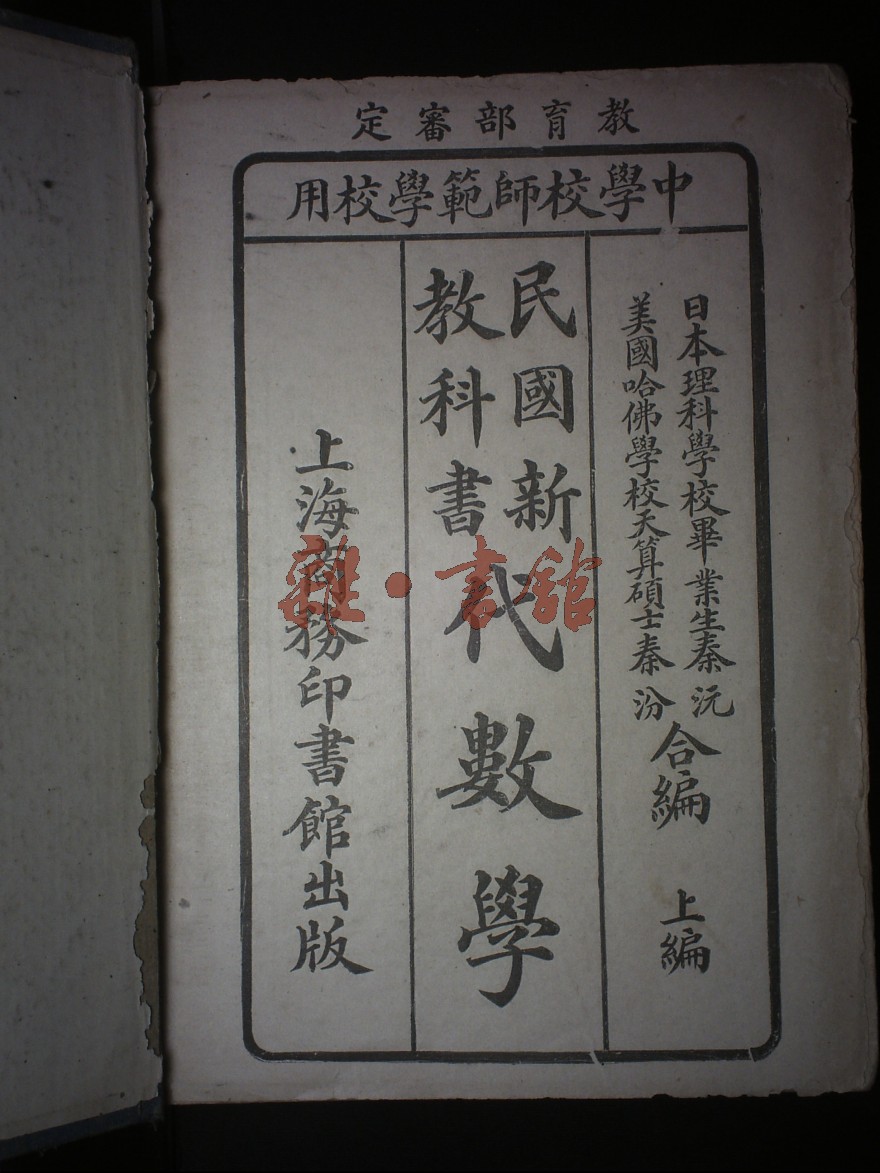 教育部審定
中學校師範學校用
日本理科學校畢業生秦沅
美國哈佛學校天算碩士秦汾
合編
上編
民國新
教科書
代數學
上海商務印書館出版
雜·書館